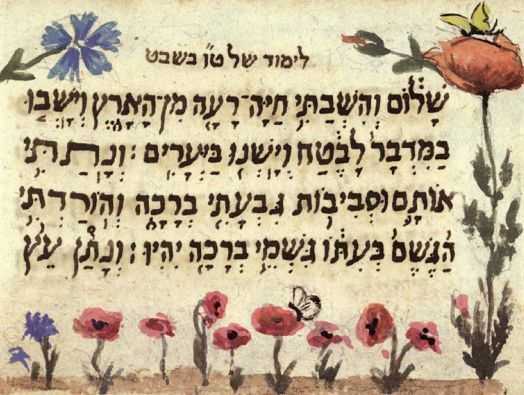 לימוד של ט״ו בשבט
שָׁלוֹם וְהִשְׁבַּתִּי חַיָּה־רָעָה מִן־הָאָרֶץ וְיָשְׁבוּ
בַמִּדְבָּר לָבֶטַח וְיָשְׁנוּ בַּיְּעָרִים : וְנָתַתִּי
אוֹתָם וּסְבִיבוֹת גִּבְעָתִי בְּרָכָה וְהוֹרַדְתִּי
הַגֶּשֶׁם בְּעִתּוֹ גִּשְׁמֵי בְרָכָה יִהְיוּ : וְנָתַן עֵץ